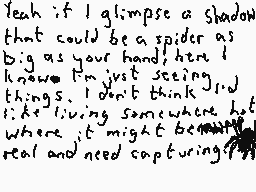 Yeah if I glimpse a shadow
that could be a spider as
big as your hand, here I
know I'm just seeing
things. I don't think I'd
like living somewhere hot
where it might be
real and need capturing.